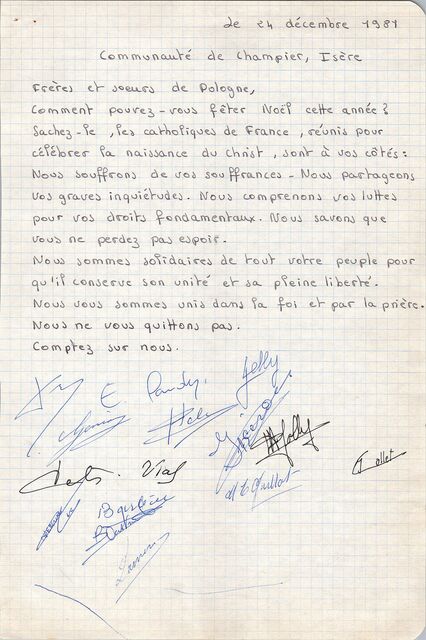 Le 24 décembre 1981
Communauté de Champier, Isère
Frères et soeurs de Pologne,
Comment pouvez-vous fêter Noël cette année?
Sachez-le, les catholiques de France, réunis pour
célébrer la naissance du Christ, sont à vos côtés:
Nous souffrons de vos souffrances - Nous partageons
vos graves inquiétudes. Nous comprenons vos luttes
pour vos droits fondamentaux. Nous savons que
vous ne perdez pas espoir.
Nous sommes solidaires de tout votre peuple pour
qu'il conserve son unité et sa pleine liberté.
Nous vous sommes unis dans la foi et par la prière.
Nous ne vous quittons pas.
Comptez sur nous.
Vial